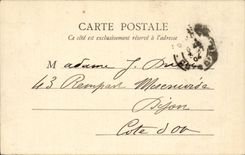 CARTE POSTALE
Ce côté est exclusivement réservé à l'adresse
Madame J.
43 Rempart
Dijon
Côte d'Or